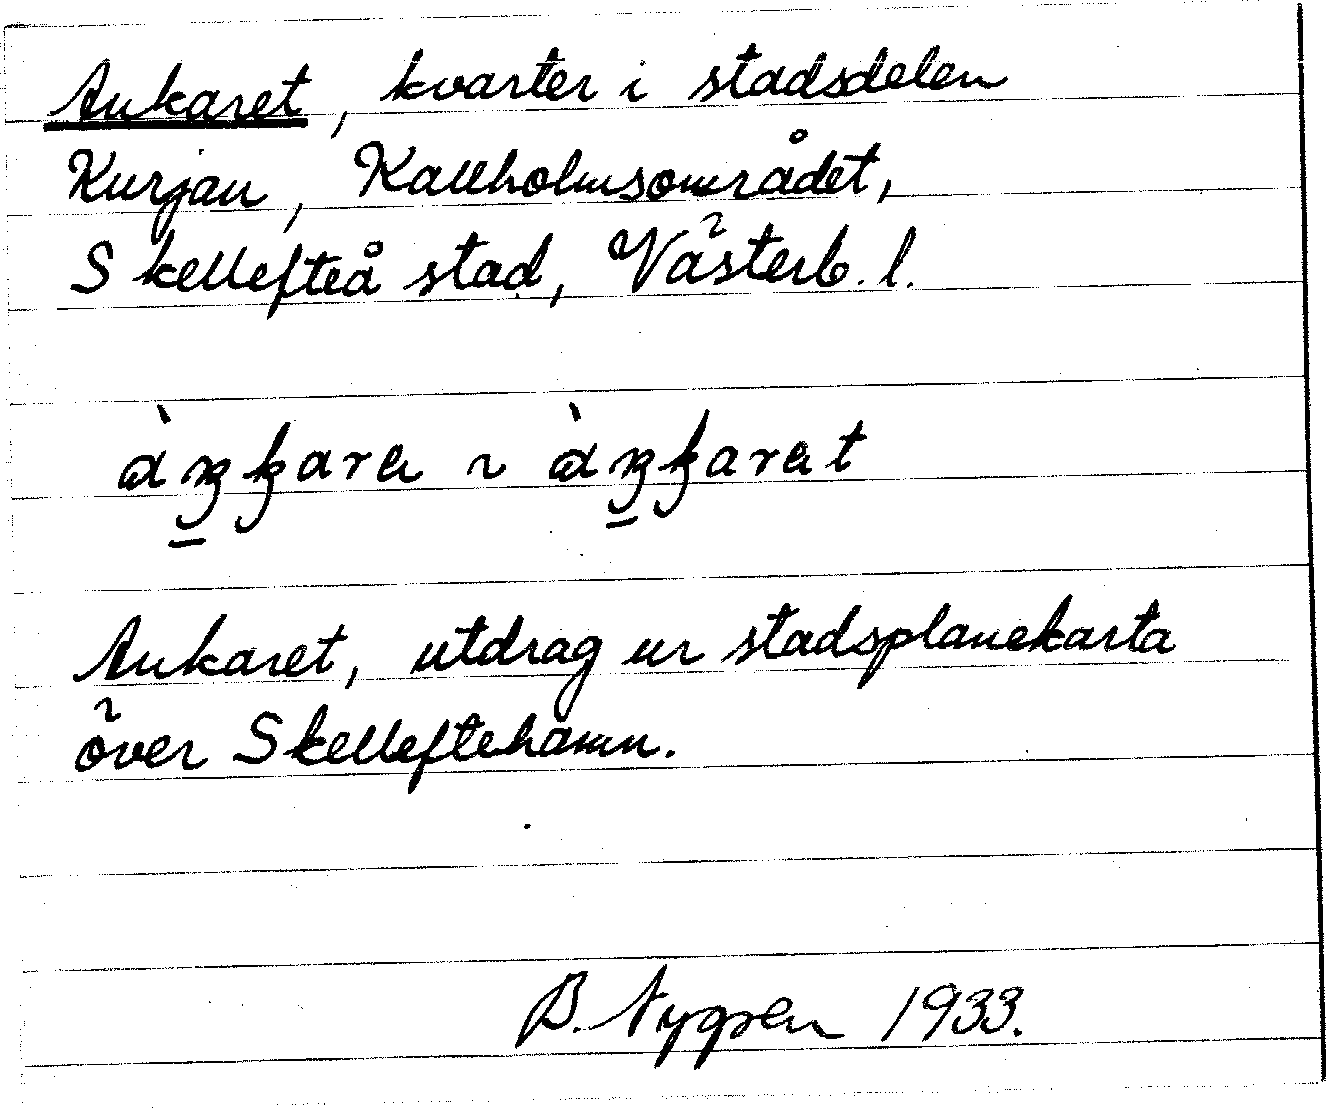 Ankaret, kvarter i stadsdelen
Kurjan, Kallholmsområdet,
Skellefteå stad, Västerb. l.
Ankaret, utdrag ur stadsplanekarta
över Skelleftehamn.
B. Nygren 1933.